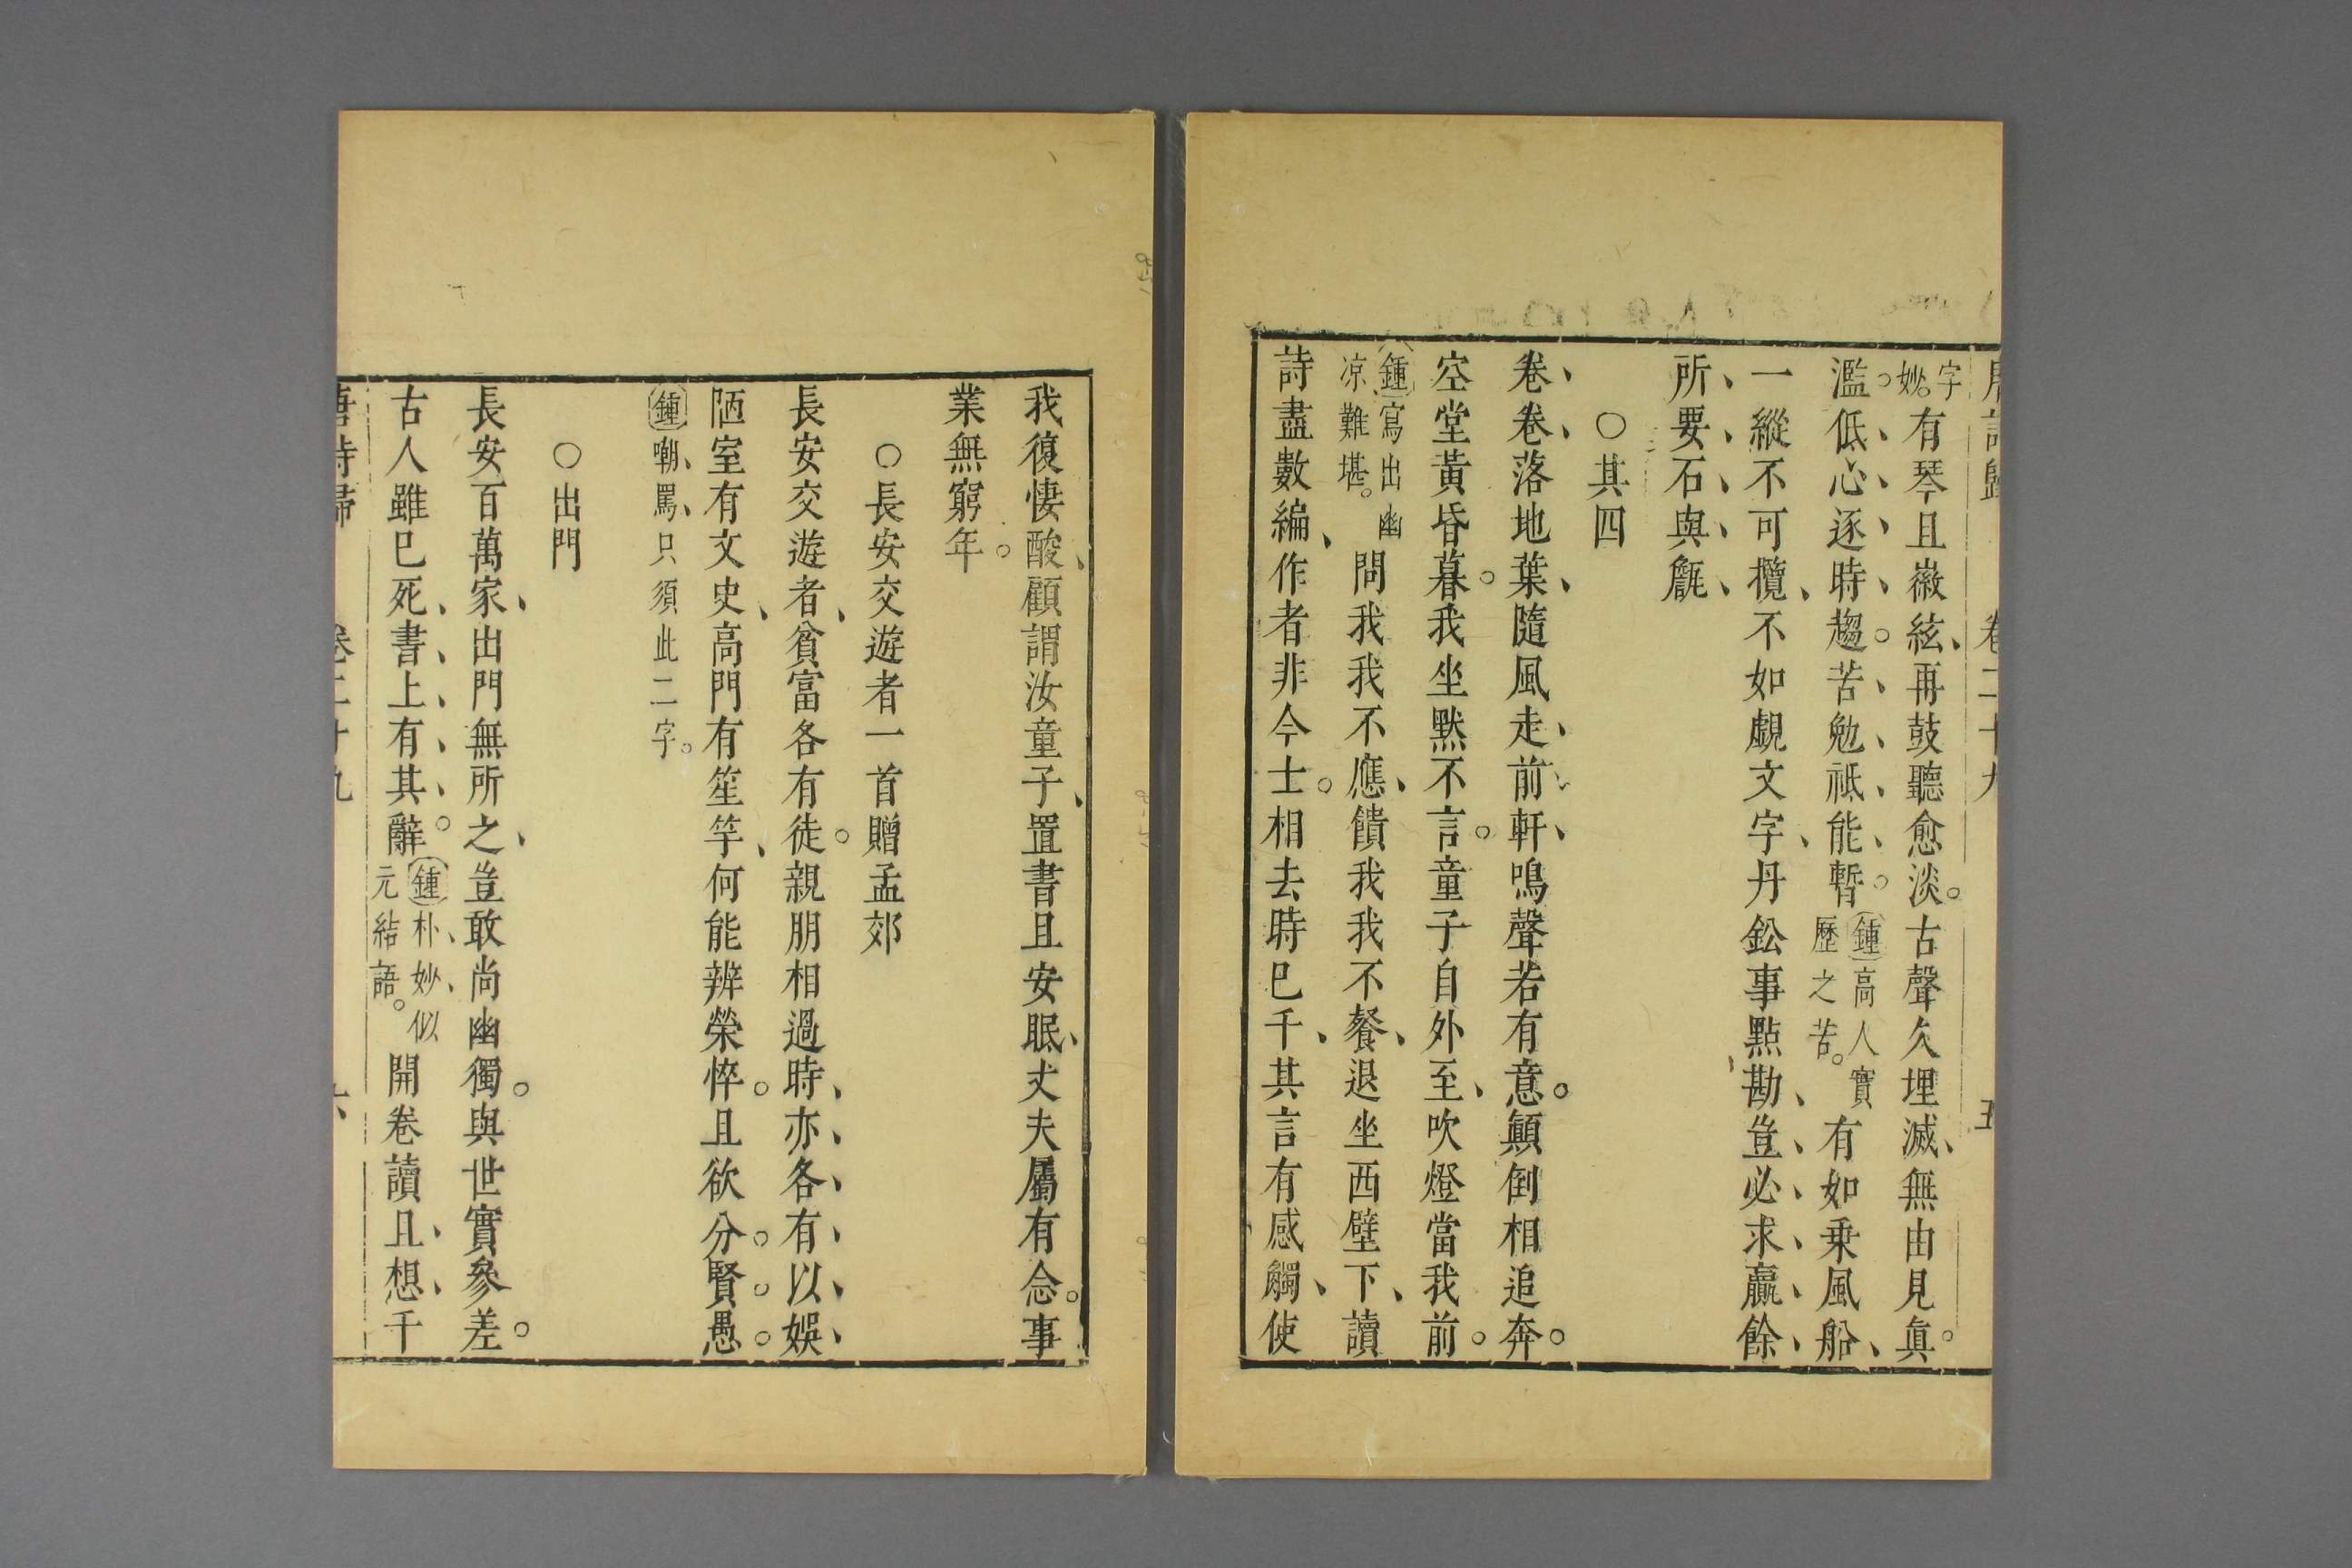 唐詩歸 卷二十九 五
字妙。有琴且徽絃、再鼓聽愈淡。古聲久埋滅、無由見眞。
濫。低心逐時趨。苦勉祗能暫。鍾高人實歷之苦。有如乗風船、
一縱不可攬、不如覷文字、丹鈆事點勘、豈必求贏餘、
所要石與甔、
○其四
卷卷落地葉、隨風走前軒、鳴聲若有意。顛倒相追奔。
空堂黃昏暮。我坐默不言。童子自外至、吹燈當我前。
鍾寫出幽凉難堪。問我我不應、饋我我不餐、退坐西壁下、讀
詩盡數編、作者非今士。相去時巳千、其言有感觸、使
我復悽酸、顧謂汝童子、置書且安眠、丈夫屬有念。事
業無窮年。
○長安交遊者一首贈孟郊
長安交遊者、貧富各有徒。親朋相過時、亦各有以娛、
陋室有文史、高門有笙竽、何能辨榮悴。且欲分賢愚。
鍾嘲、罵、只須此二字。
○出門
長安百萬家、出門無所之、豈敢尚幽獨。與世實參差。
古人雖巳死、書上有其辭。鍾朴、妙、似元結語。開卷讀且想、千
唐詩歸 卷二十九 六